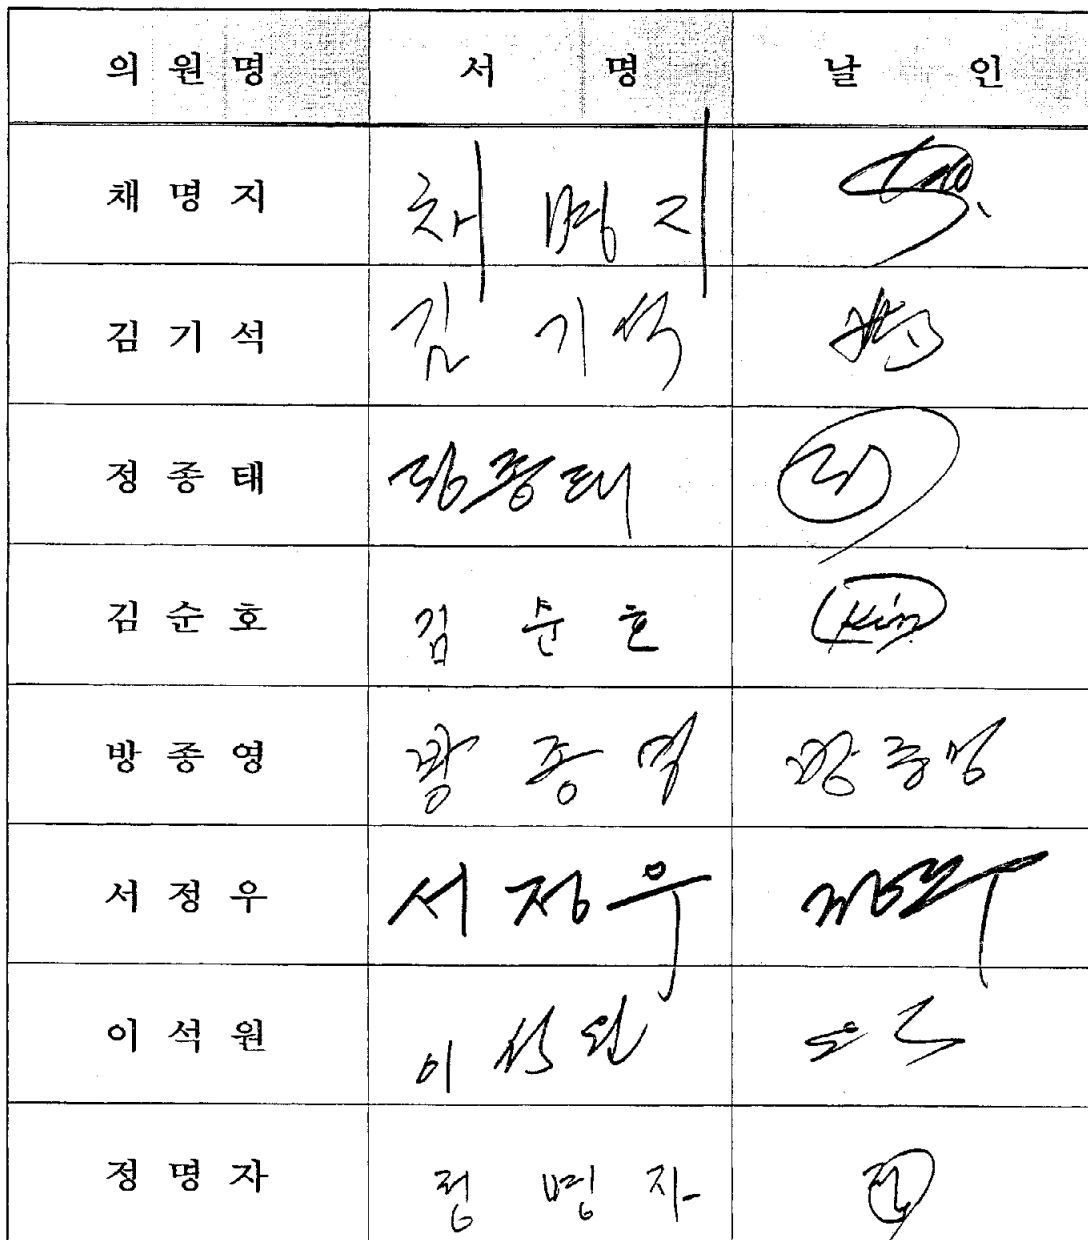 의 원 명 서 명 날 인
채 명 지 채 명 지
김 기 석 김 기 석
정 종 태 정종태
김 순 호 김 순 호 Kim
방 종 영 방 종 영 방종영
서 정 우 서 정 우
이 석 원 이 석 원
정 명 자 정 명 자 정